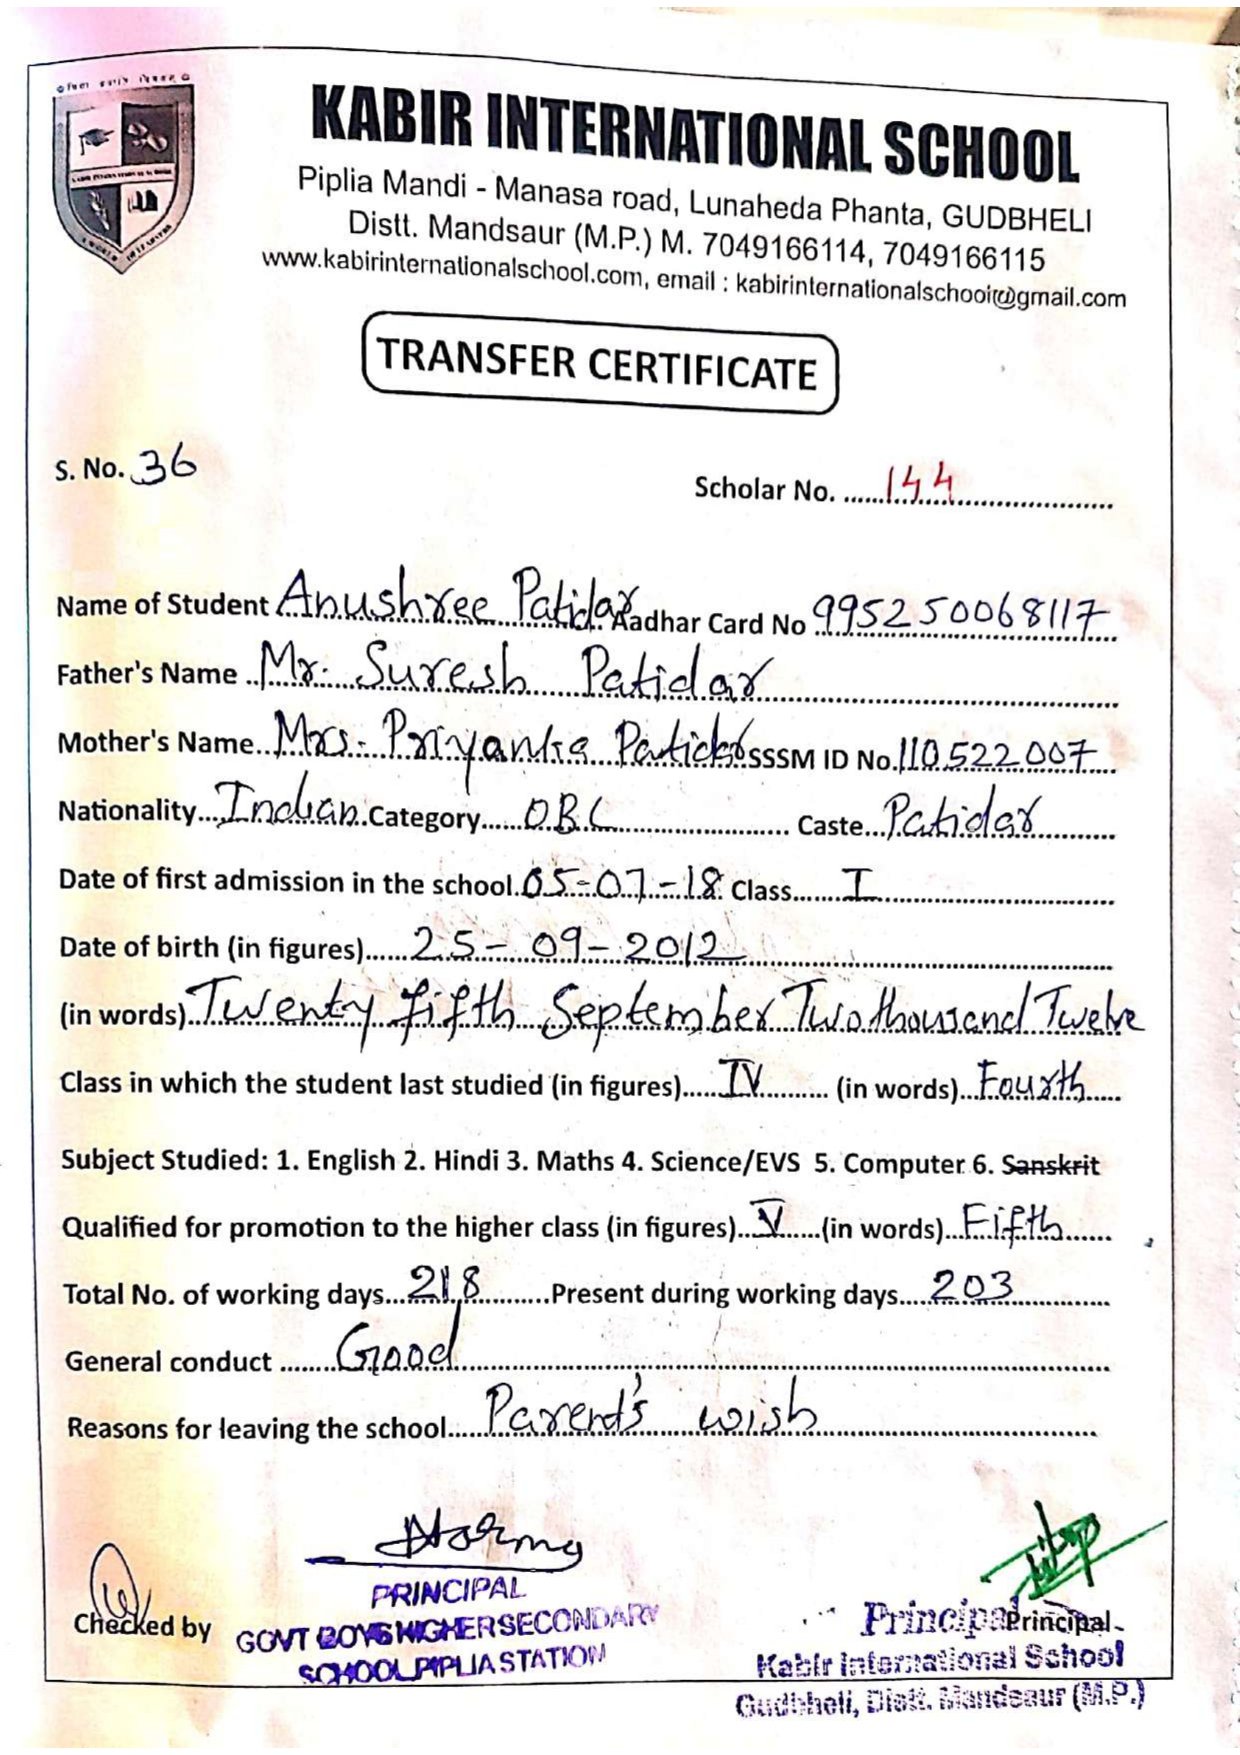 KABIR INTERNATIONAL SCHOOL
Piplia Mandi - Manasa road, Lunaheda Phanta, GUDBHELI
Distt. Mandsaur (M.P.) M. 7049166114, 7049166115
www.kabirinternationalschool.com, email : kabirinternationalschool@gmail.com
KABIR INTERNATIONAL SCHOOL
TRANSFER CERTIFICATE
S. No. 36
Scholar No. ......144
Name of Student Anushree Patidar Aadhar Card No 995250068117
Father's Name Mr. Suresh Patidar
Mother's Name Mrs. Priyanka Patidar SSSM ID No. 110522007
Nationality Indian Category O.B.C Caste Patidar
Date of first admission in the school 05-07-18 Class I
Date of birth (in figures) 25-09-2012
(in words) Twenty fifth September Two thousand Twelve
Class in which the student last studied (in figures) IV (in words) Fourth
Subject Studied: 1. English 2. Hindi 3. Maths 4. Science/EVS 5. Computer 6. Sanskrit
Qualified for promotion to the higher class (in figures) V (in words) Fifth
Total No. of working days 218 Present during working days 203
General conduct Good
Reasons for leaving the school Parent's wish
Checked by
PRINCIPAL
GOVT BOYS HIGHER SECONDARY
SCHOOL PIPLIA STATION
Principal Principal
Kabir International School
Gudbheli, Distt. Mandsaur (M.P.)